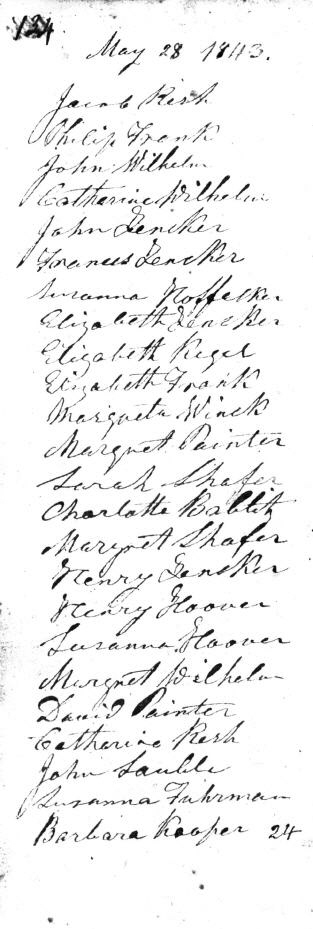 134
May 28 1843.
Jacob Kesh
Philip Frank
John Wilhelm
Catherine Wilhelm
John Zencker
Frances Zencker
Susanna Noffesker
Elizabeth Zencker
Elizabeth Kegel
Elizabeth Frank
Margreta Winck
Margret Painter
Sarah Shafer
Charlotte Bablitz
Margret Shafer
Henry Zencker
Henry Hoover
Susanna Hoover
Margret Wilhelm
David Painter
Catherine Kesh
John Sauble
Susanna Fuhrman
Barbara Kooper 24